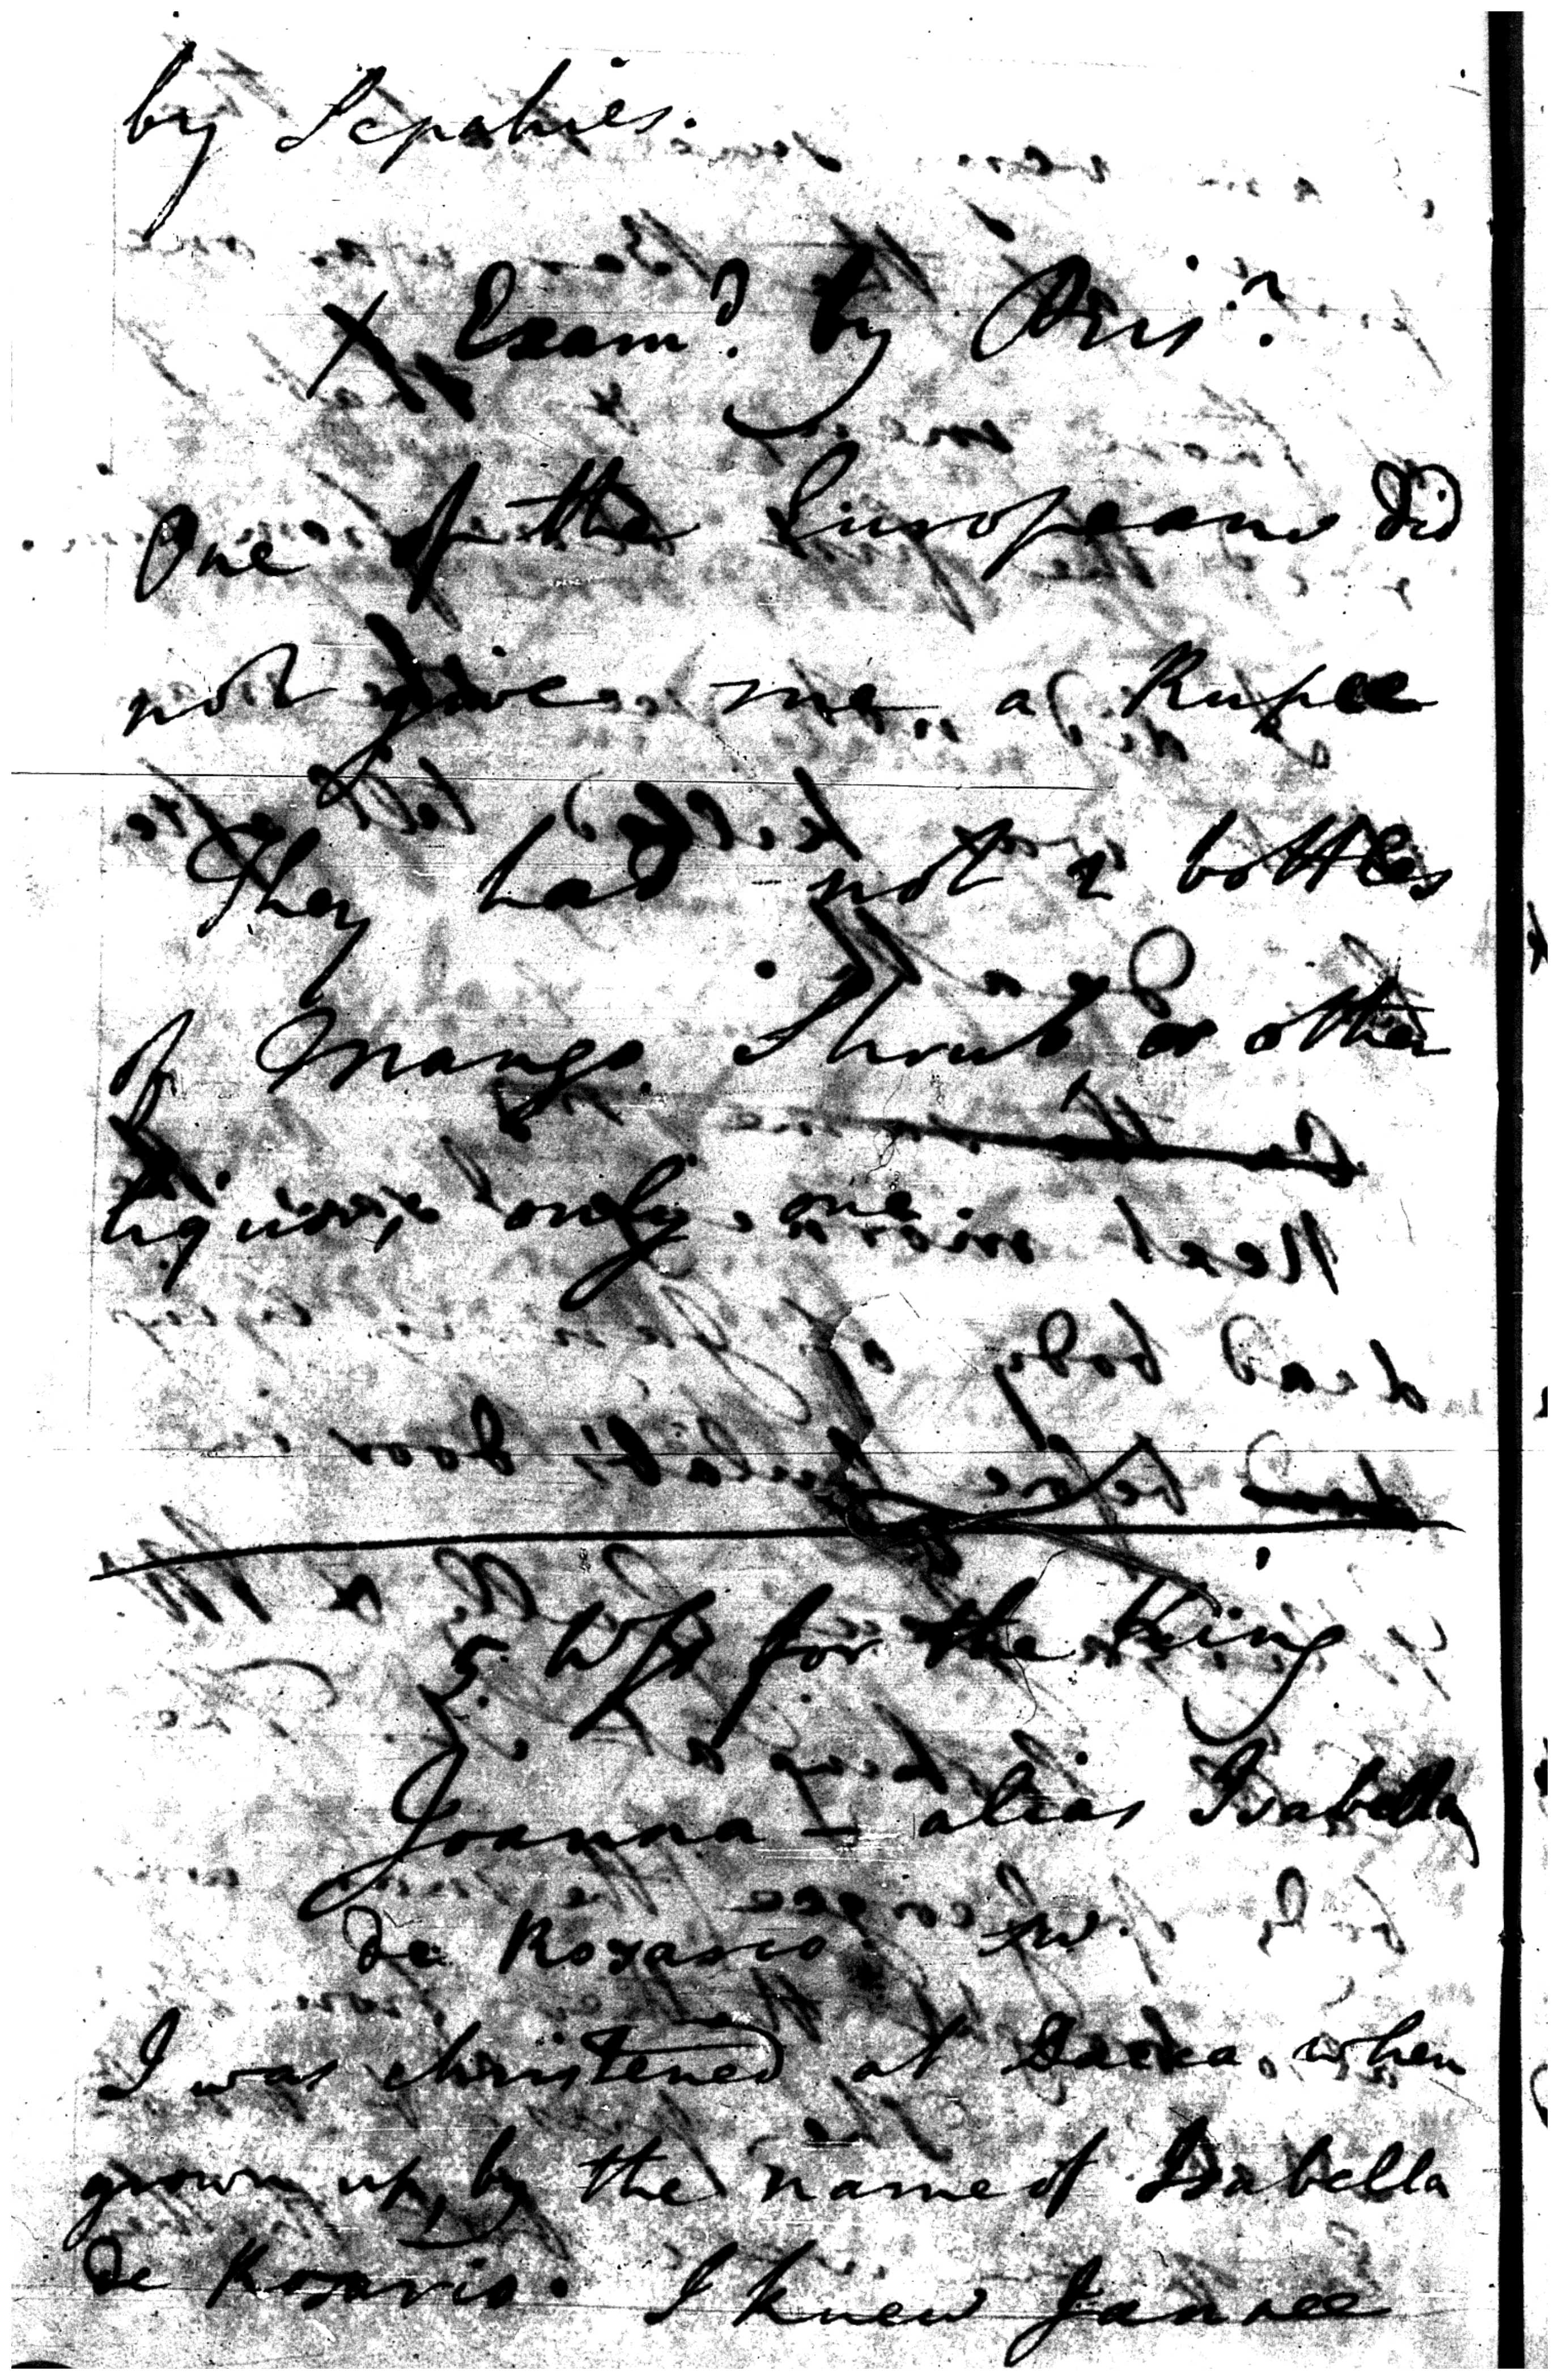 by Sepahies.
X Examd. by Prisr.
One of the Europeans did
not give me a Rupee
They had not 2 bottles
of Mango Shrub or other
liquors, only one.
5. Wss for the King
Joanna – alias Isabella
de Rozario. Sw.
I was christened at Dacka, when
grown up, by the name of Isabella
de Rozario. I knew Jannee